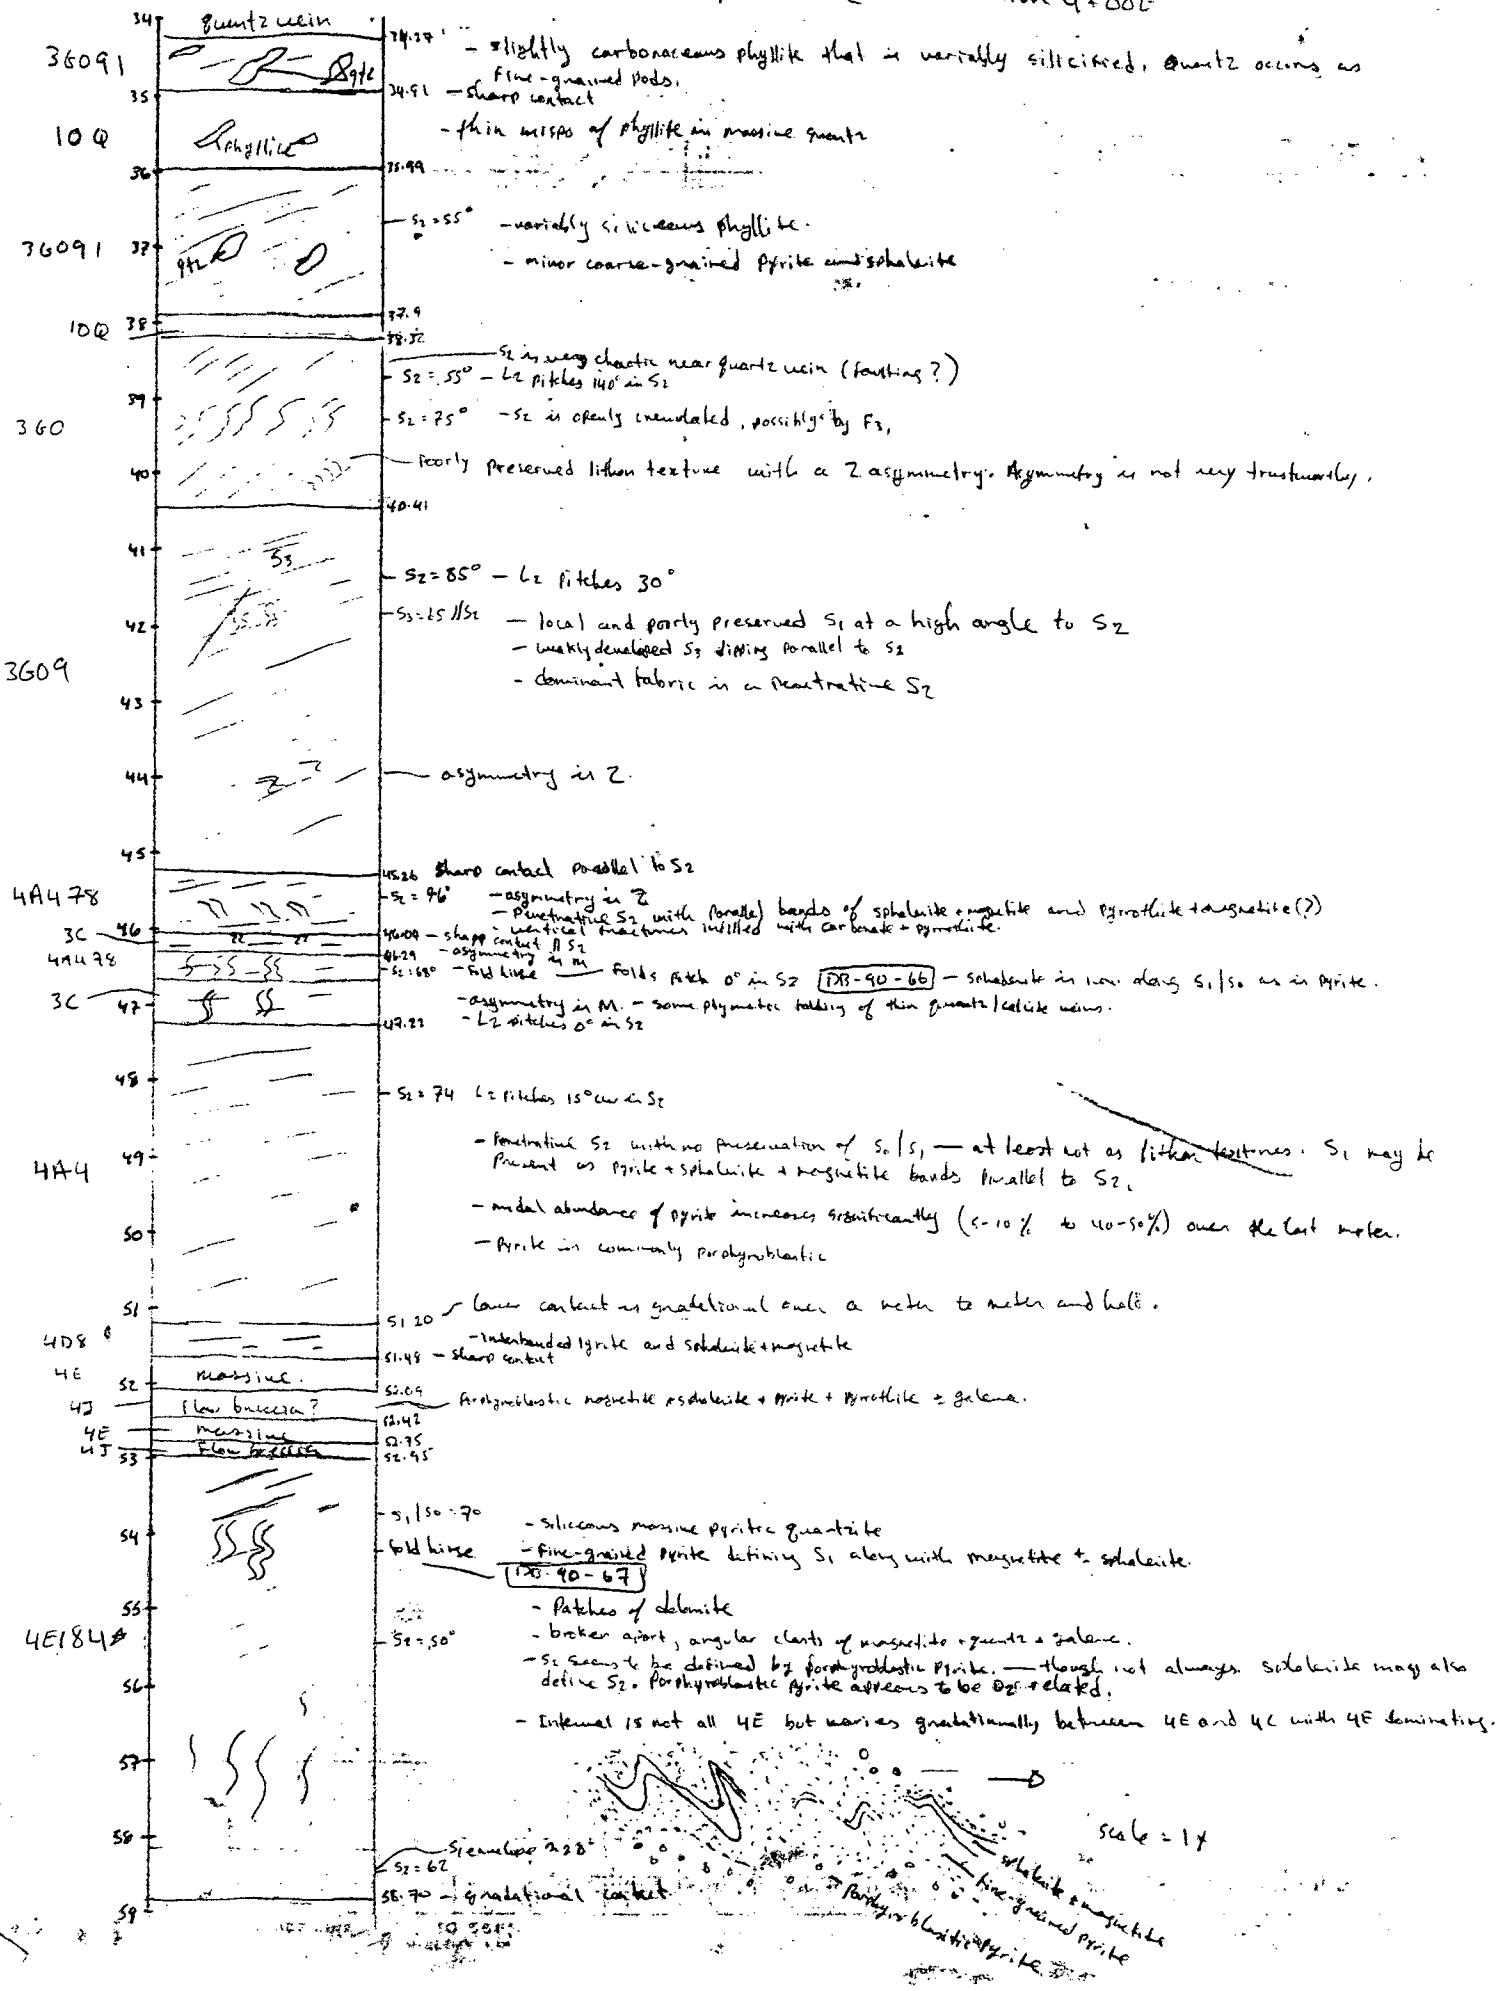 34
quartz vein
34.37
- slightly carbonaceous phyllite that is variably silicified, quartz occurs as
fine-grained pods.
3G091
qtz
35
34.91 - sharp contact
10Q
phyllite
- thin wisps of phyllite in massive quartz
36
35.99
S2 = 55°
- variably siliceous phyllite.
3G091
37
qtz
- minor coarse-grained pyrite and sphalerite
37.9
10Q
38
38.32
S2 is very chaotic near quartz vein (faulting?)
S2 = 55° - L2 pitches 140° in S2
39
3G0
S2 = 75° - S2 is openly crenulated, possibly by F3,
40
Poorly preserved lithon texture with a Z asymmetry. Asymmetry is not very trustworthy.
40.41
41
S3
S2 = 85° - L2 pitches 30°
S3 = 65 //S2
42
- local and poorly preserved S1 at a high angle to S2
- weakly developed S3 dipping parallel to S2
3G09
- dominant fabric is a penetrative S2
43
44
asymmetry is Z.
45
45.26 sharp contact parallel to S2
4A478
S2 = 96° - asymmetry is Z
- penetrative S2 with parallel bands of sphalerite + magnetite and pyrrothite + magnetite (?)
- vertical fractures infilled with carbonate + pyrrothite.
46
3C
46.04 - sharp contact // S2
46.29 - asymmetry is M
4A478
S2 = 68° - Fold hinge - Folds pitch 0° in S2 DB-90-66 - sphalerite is along S1/S0 as is pyrite.
3C
47
- asymmetry is M. - some ptymatic folding of thin quartz/calcite veins.
47.22 - L2 pitches 0° in S2
48
S2 = 74 L2 pitches 15° in S2
49
4A4
- Penetrative S2 with no preservation of S0/S1 - at least not as lithon textures. S1 may be
present as pyrite + sphalerite + magnetite bands parallel to S2.
- modal abundance of pyrite increases significantly (5-10% to 40-50%) over the last meter.
50
- Pyrite is commonly porphyroblastic
51
51.20 lower contact is gradational over a meter to meter and half.
4D8
- Interbanded pyrite and sphalerite + magnetite
51.48 - sharp contact
4E
52
massive.
52.09
4J
flow breccia?
Porphyroblastic magnetite + sphalerite + pyrite + pyrrothite ± galena.
52.42
4E
massive
52.75
4J
53
Flow breccia
52.95
S1/S0 = 70
54
- siliceous massive pyritic quartzite
fold hinge
- Fine-grained pyrite defining S1 along with magnetite + sphalerite.
DB-90-67
55
- Patches of dolomite
4E184
S2 = 50°
- broken apart, angular clasts of magnetite + quartz + galena.
- S2 seems to be defined by porphyroblastic pyrite. - though not always. sphalerite may also
define S2. Porphyroblastic pyrite appears to be D2 related.
56
- Interval is not all 4E but varies gradationally between 4E and 4C with 4E dominating.
57
58
scale = 1x
S1 envelope = 28°
S2 = 62
58.70 - gradational contact
59
sphalerite + magnetite
fine-grained pyrite
Porphyroblastic pyrite